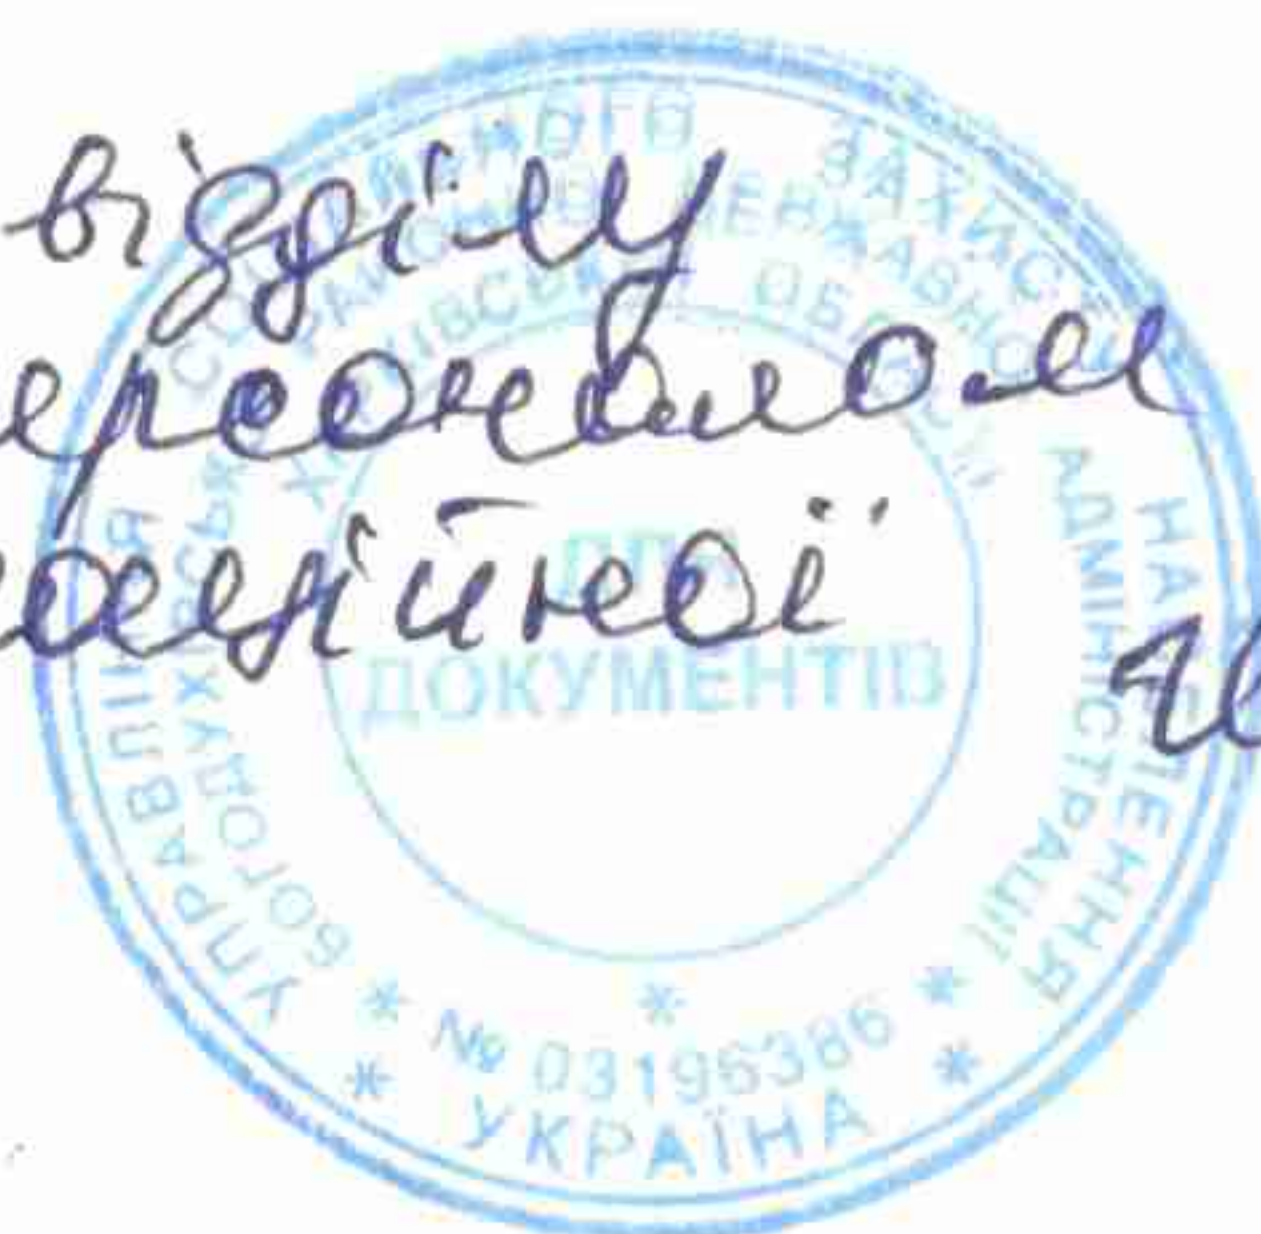 відділу
ерсоналом
аційної
УПРАВЛІННЯ СОЦІАЛЬНОГО ЗАХИСТУ НАСЕЛЕННЯ
БОГОДУХІВСЬКОЇ РАЙОННОЇ ДЕРЖАВНОЇ АДМІНІСТРАЦІЇ
ХАРКІВСЬКОЇ ОБЛАСТІ
ДЛЯ
ДОКУМЕНТІВ
* № 03196386 *
* УКРАЇНА *